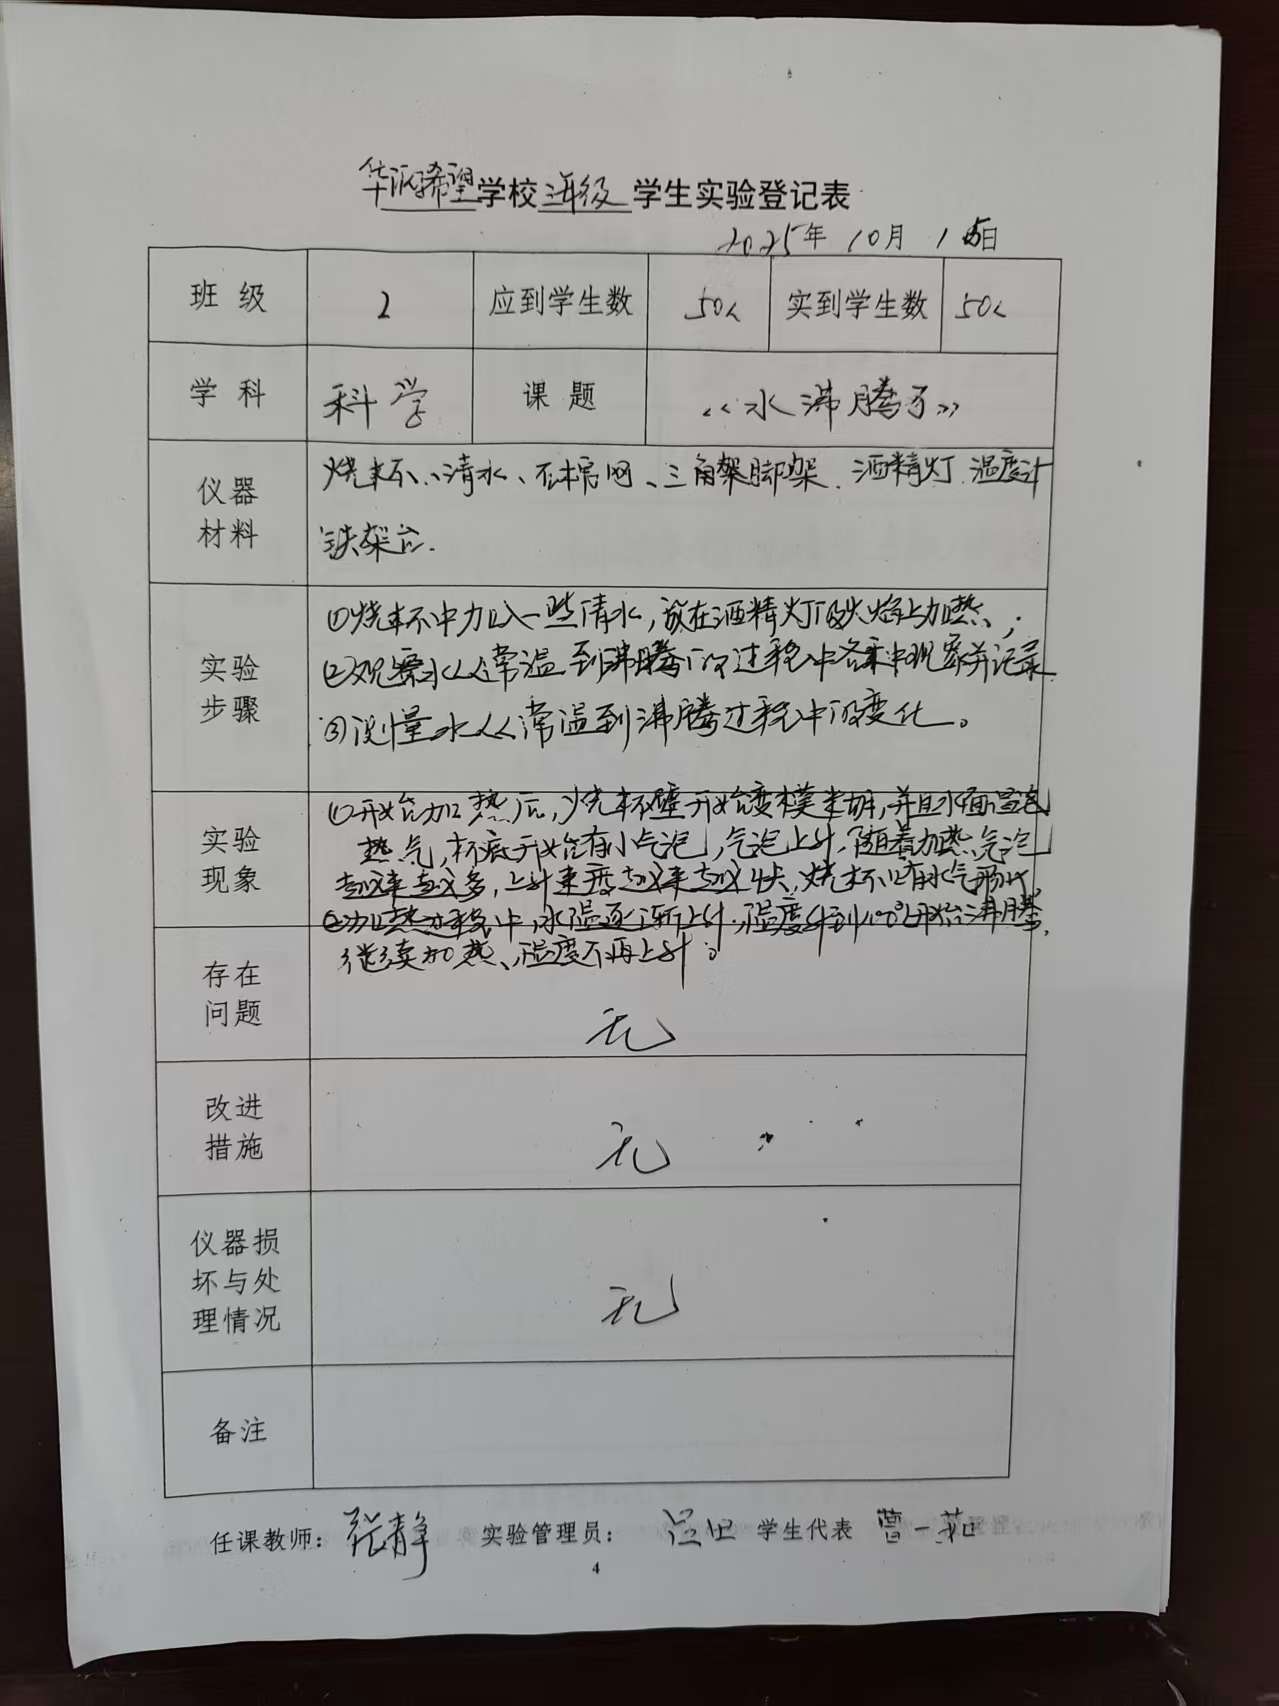 华派希望学校三年级学生实验登记表
2025年10月15日
班级 2 应到学生数 50人 实到学生数 50人
学科 科学 课题 《水沸腾了》
仪器材料 烧杯、清水、石棉网、三角架脚架、酒精灯、温度计
铁架台.
实验步骤 ①烧杯中加入一些清水,放在酒精灯的火焰上加热;
②观察水从常温到沸腾的过程中各集中观察并记录
③测量水从常温到沸腾过程中的变化。
实验现象 ①开始加热后,烧杯壁开始变模糊,并且水面冒
热气,杯底开始有小气泡,气泡上升,随着加热气泡
越来越多,上升速度越来越快,烧杯口有水气形成
②加热过程中,水温逐渐上升,温度升到100℃开始沸腾,
继续加热、温度不再上升。
存在问题 无
改进措施 无
仪器损坏与处理情况 无
备注
任课教师: 张静 实验管理员: 学生代表 曹一茹
4